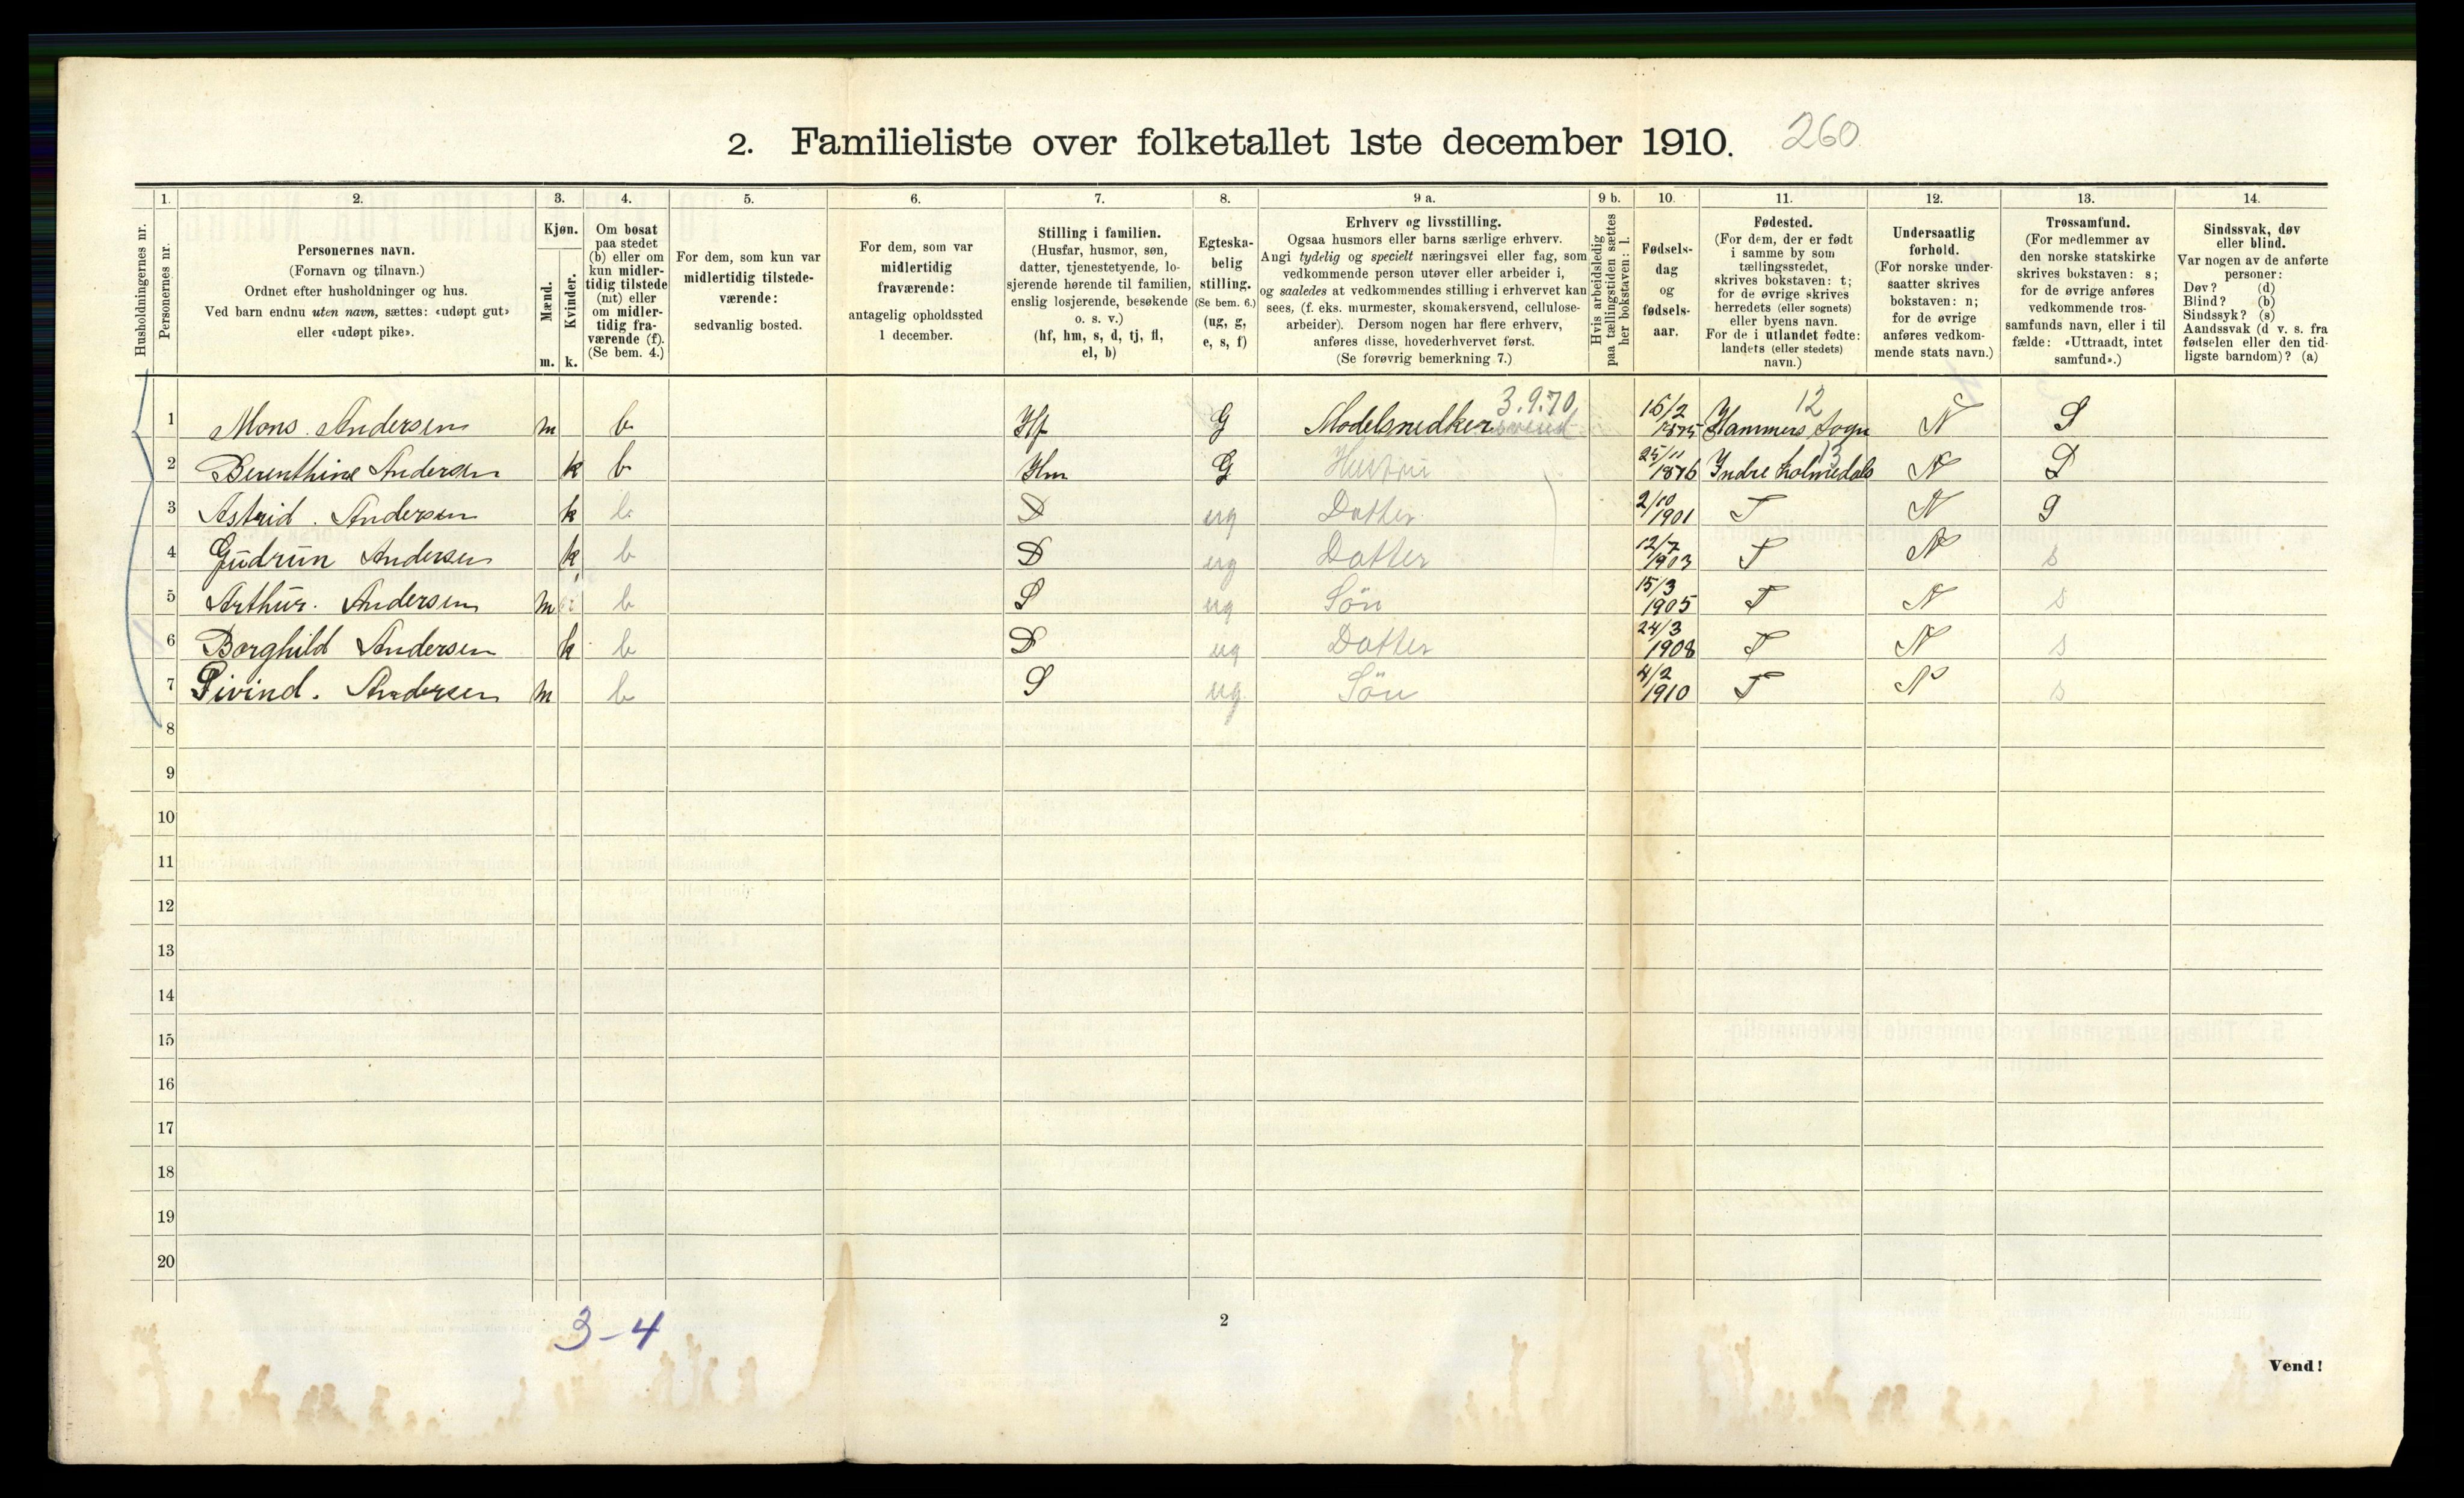 2. Familieliste over folketallet 1ste december 1910. 260
1. 2. 3. 4. 5. 6. 7. 8. 9 a. 9 b. 10. 11. 12. 13. 14.
Husholdningernes nr.
Personernes nr.
Personernes navn.
(Fornavn og tilnavn.)
Ordnet efter husholdninger og hus.
Ved barn endnu uten navn, sættes: «udøpt gut»
eller «udøpt pike».
Kjøn.
Mænd.
Kvinder.
m. k.
Om bosat
paa stedet
(b) eller om
kun midler-
tidig tilstede
(mt) eller
om midler-
tidig fra-
værende (f).
(Se bem. 4.)
For dem, som kun var
midlertidig tilstede-
værende:
sedvanlig bosted.
For dem, som var
midlertidig
fraværende:
antagelig opholdssted
1 december.
Stilling i familien.
(Husfar, husmor, søn,
datter, tjenestetyende, lo-
sjerende hørende til familien,
enslig losjerende, besøkende
o. s. v.)
(hf, hm, s, d, tj, fl,
el, b)
Egteska-
belig
stilling.
(Se bem. 6.)
(ug, g,
e, s, f)
Erhverv og livsstilling.
Ogsaa husmors eller barns særlige erhverv.
Angi tydelig og specielt næringsvei eller fag, som
vedkommende person utøver eller arbeider i,
og saaledes at vedkommendes stilling i erhvervet kan
sees, (f. eks. murmester, skomakersvend, cellulose-
arbeider). Dersom nogen har flere erhverv,
anføres disse, hovederhvervet først.
(Se forøvrig bemerkning 7.)
Hvis arbeidsledig
paa tællingstiden sættes
her bokstaven: l.
Fødsels-
dag
og
fødsels-
aar.
Fødested.
(For dem, der er født
i samme by som
tællingsstedet,
skrives bokstaven: t;
for de øvrige skrives
herredets (eller sognets)
eller byens navn.
For de i utlandet fødte:
landets (eller stedets)
navn.)
Undersaatlig
forhold.
(For norske under-
saatter skrives
bokstaven: n;
for de øvrige
anføres vedkom-
mende stats navn.)
Trossamfund.
(For medlemmer av
den norske statskirke
skrives bokstaven: s;
for de øvrige anføres
vedkommende tros-
samfunds navn, eller i til
fælde: «Uttraadt, intet
samfund».)
Sindssvak, døv
eller blind.
Var nogen av de anførte
personer:
Døv? (d)
Blind? (b)
Sindssyk? (s)
Aandssvak (d v. s. fra
fødselen eller den tid-
ligste barndom)? (a)
3.9.70 12
1 Mons Andersen m b Hf G Modelsnedkersvend 16/2 1875 Hammers Sogn N S
13
2 Berenthine Andersen k b Hm G Hustru 25/11 1876 Indre Holmedals N S
3 Astrid Andersen k b D ug Datter 2/10 1901 T N S
4 Gudrun Andersen k b D ug Datter 12/7 1903 T N s
5 Arthur Andersen m b S ug Sön 15/3 1905 T N s
6 Borghild Andersen k b D ug Datter 24/3 1908 T N s
7 Øivind Andersen m b S ug Sön 4/2 1910 T N s
8
9
10
11
12
13
14
15
16
17
18
19
20
3-4
2
Vend!